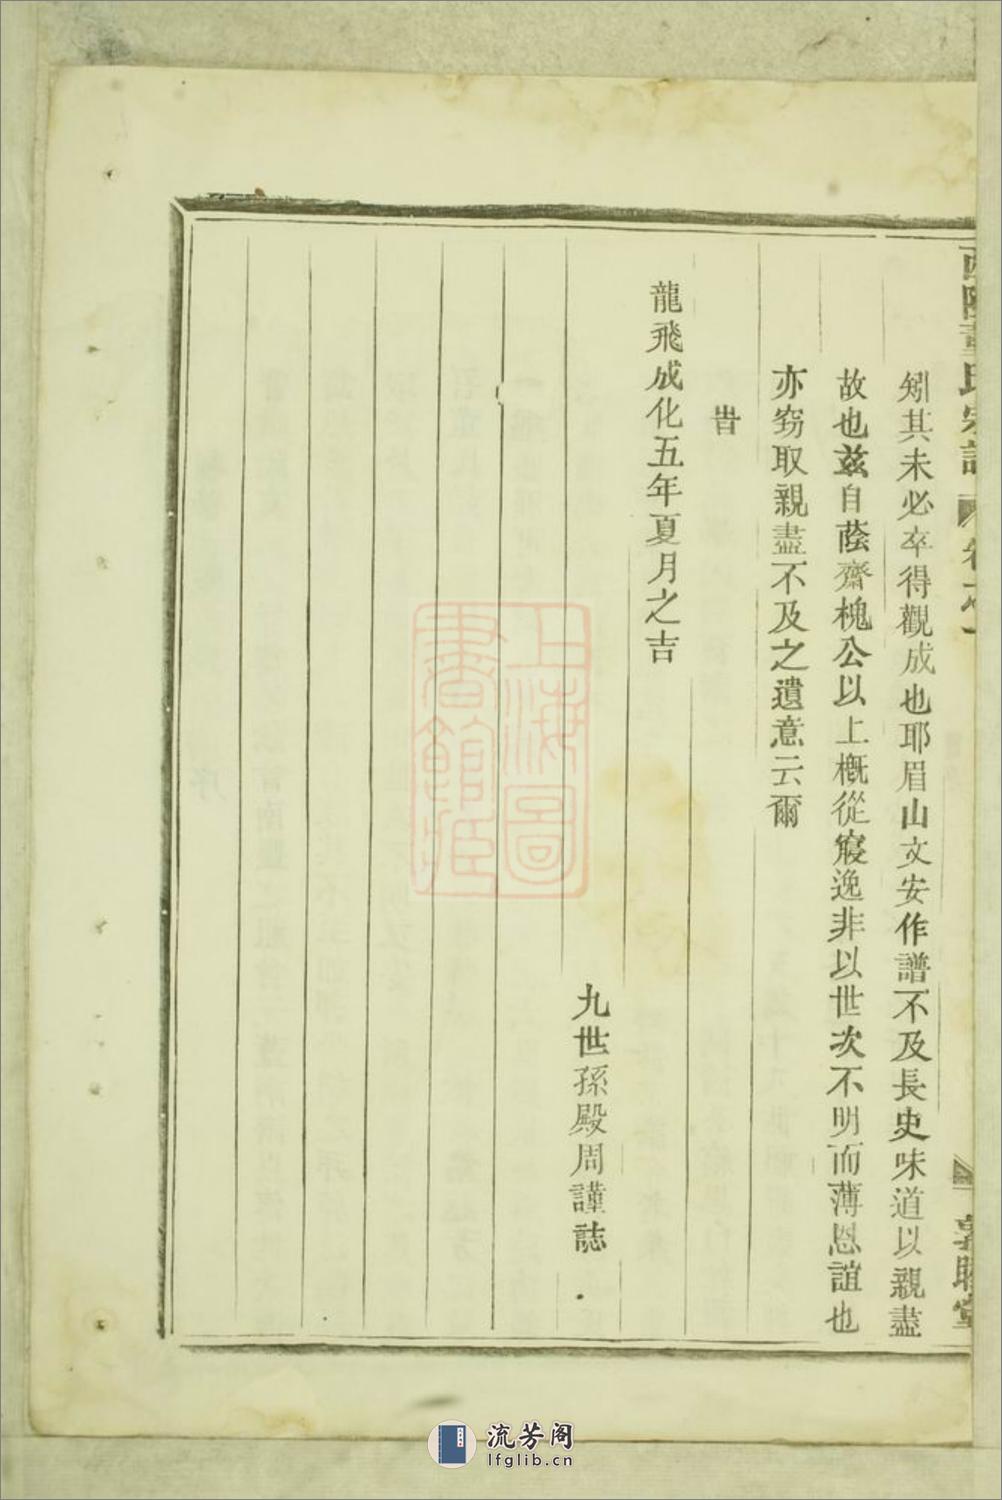 矧其未必卒得觀成也耶眉山文安作譜不及長史味道以親盡
故也茲自蔭齋槐公以上概從寢逸非以世次不明而薄恩誼也
亦窃取親盡不及之遺意云爾
旹
龍飛成化五年夏月之吉
九世孫殿周謹誌
上海圖
書館藏
流芳阁
lfglib.cn